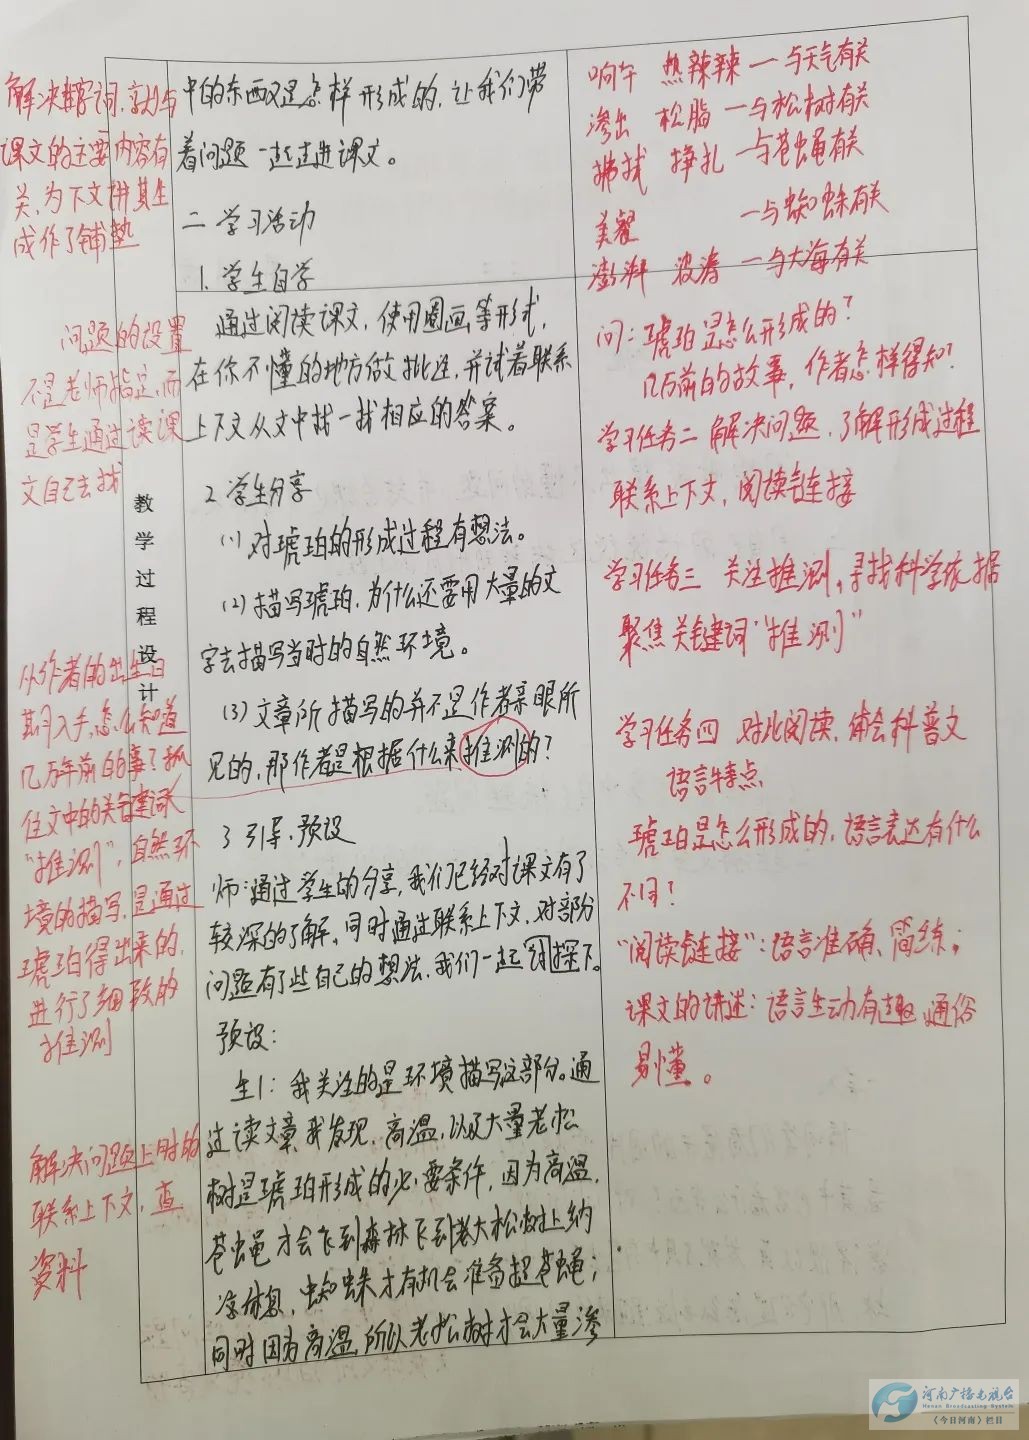 解决难字词,就与
课文的主要内容有
关,为下文讲其生
成作了铺垫
问题的设置
不是老师指定,而
是学生通过读课
文自己去找
教学过程设计
从作者的出生日
期入手,怎么知道
几万年前的事?抓
住文中的关键词
"推测",自然环
境的描写,是通过
琥珀得出来的,
进行了细致的
推测
解决问题上时的
联系上下文,查
资料
中的东西又是怎样形成的,让我们带
着问题一起走进课文。
二 学习活动
1. 学生自学
通过阅读课文,使用圈画等形式,
在你不懂的地方做批注,并试着联系
上下文从文中找一找相应的答案。
2. 学生分享
(1) 对琥珀的形成过程有想法。
(2) 描写琥珀,为什么还要用大量的文
字去描写当时的自然环境。
(3) 文章所描写的并不是作者亲眼所
见的,那作者是根据什么来推测的?
3 引导,预设
师:通过学生的分享,我们已经对课文有了
较深的了解,同时通过联系上下文,对部分
问题有了些自己的想法,我们一起探下。
预设:
生1:我关注的是环境描写这部分。通
过读文章,我发现,高温,以及大量老松
树是琥珀形成的必要条件,因为高温,
苍蝇才会飞到森林飞到老大松树上纳
凉休息,蜘蛛才有机会准备捉苍蝇;
同时因为高温,所以老松树才会大量渗
响午 热辣辣 一与天气有关
渗出 松脂 一与松树有关
拂拭 挣扎 一与苍蝇有关
美餐 一与蜘蛛有关
澎湃 波涛 一与大海有关
问:琥珀是怎么形成的?
几万前的故事,作者怎样得知?
学习任务二 解决问题,了解形成过程
联系上下文,阅读链接
学习任务三 关注推测,寻找科学依据
聚焦关键词"推测"
学习任务四 对比阅读,体会科普文
语言特点
琥珀是怎么形成的,语言表达有什么
不同?
"阅读链接":语言准确、简练;
课文的讲述:语言生动有趣,通俗
易懂。
河南广播电视台
Henan Broadcasting System
《今日河南》栏目